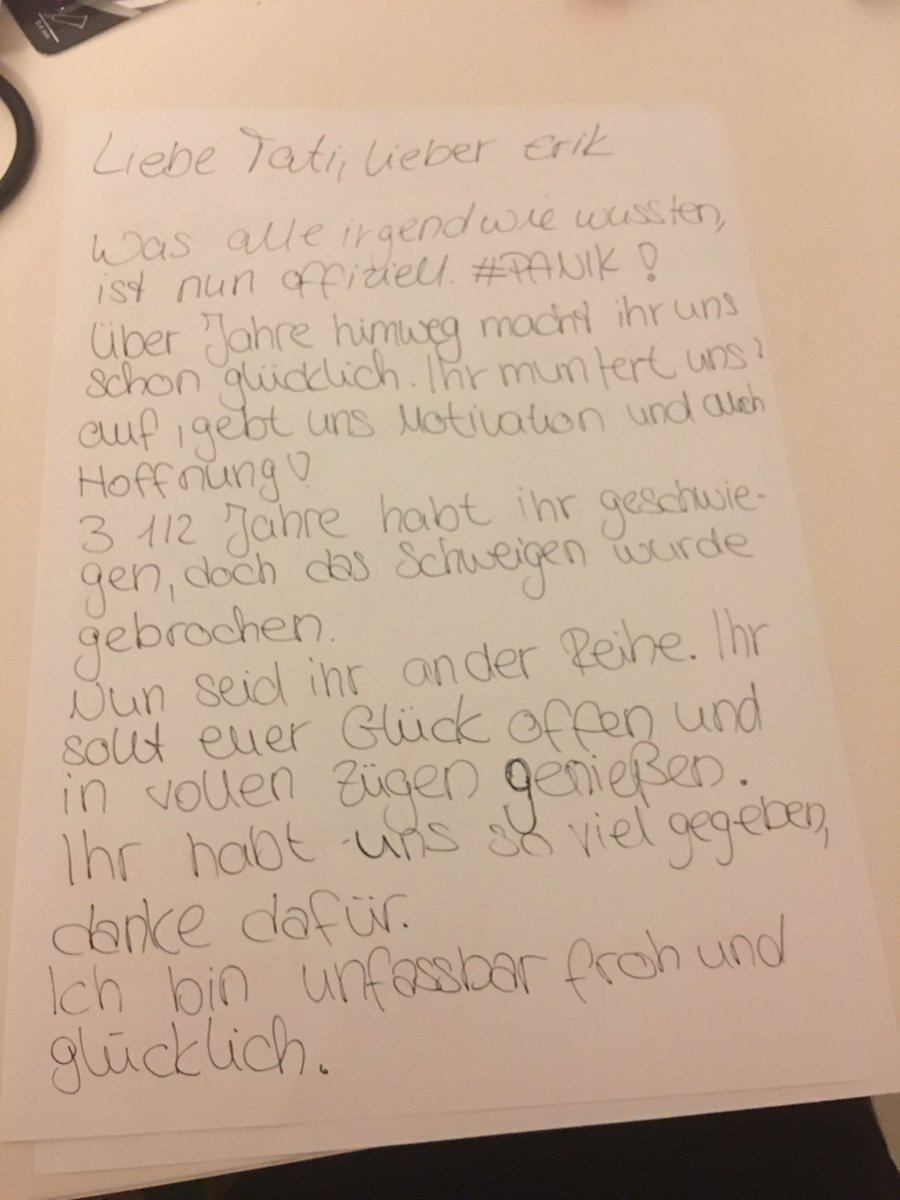 Liebe Tati, lieber Erik
Was alle irgendwie wussten,
ist nun offiziell. #PANIK!
Über Jahre himweg macht ihr uns
schon glücklich. Ihr muntert uns
auf, gebt uns Motivation und auch
Hoffnung♡
3 1/2 Jahre habt ihr geschwie-
gen, doch das Schweigen wurde
gebrochen.
Nun seid ihr an der Reihe. Ihr
sollt euer Glück offen und
in vollen Zügen genießen.
Ihr habt uns so viel gegeben,
danke dafür.
Ich bin unfassbar froh und
glücklich.